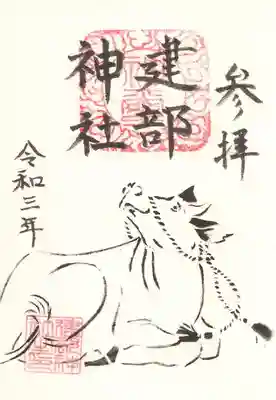 参拝
建部
神社
令和三年